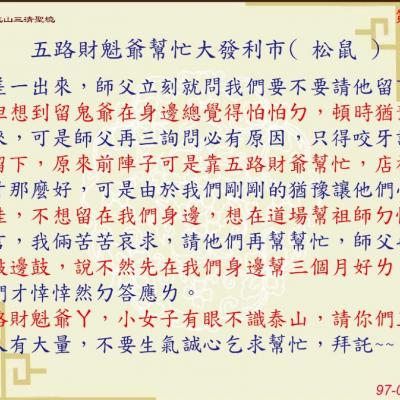 山三清聖境
五路財魁爺幫忙大發利市( 松鼠 )
一出來，師父立刻就問我們要不要請他留
想到留鬼爺在身邊總覺得怕怕ㄉ，頓時猶
來，可是師父再三詢問必有原因，只得咬牙
留下，原來前陣子可是靠五路財爺幫忙，店
那麼好，可是由於我們剛剛的猶豫讓他們
，不想留在我們身邊，想在道場幫祖師ㄉ
，我倆苦苦哀求，請他們再幫幫忙，師父
敲邊鼓，說不然先在我們身邊幫三個月好ㄌ
們才悻悻然ㄉ答應ㄌ。
路財魁爺ㄚ，小女子有眼不識泰山，請你們
人有大量，不要生氣誠心乞求幫忙，拜託~~
97-0